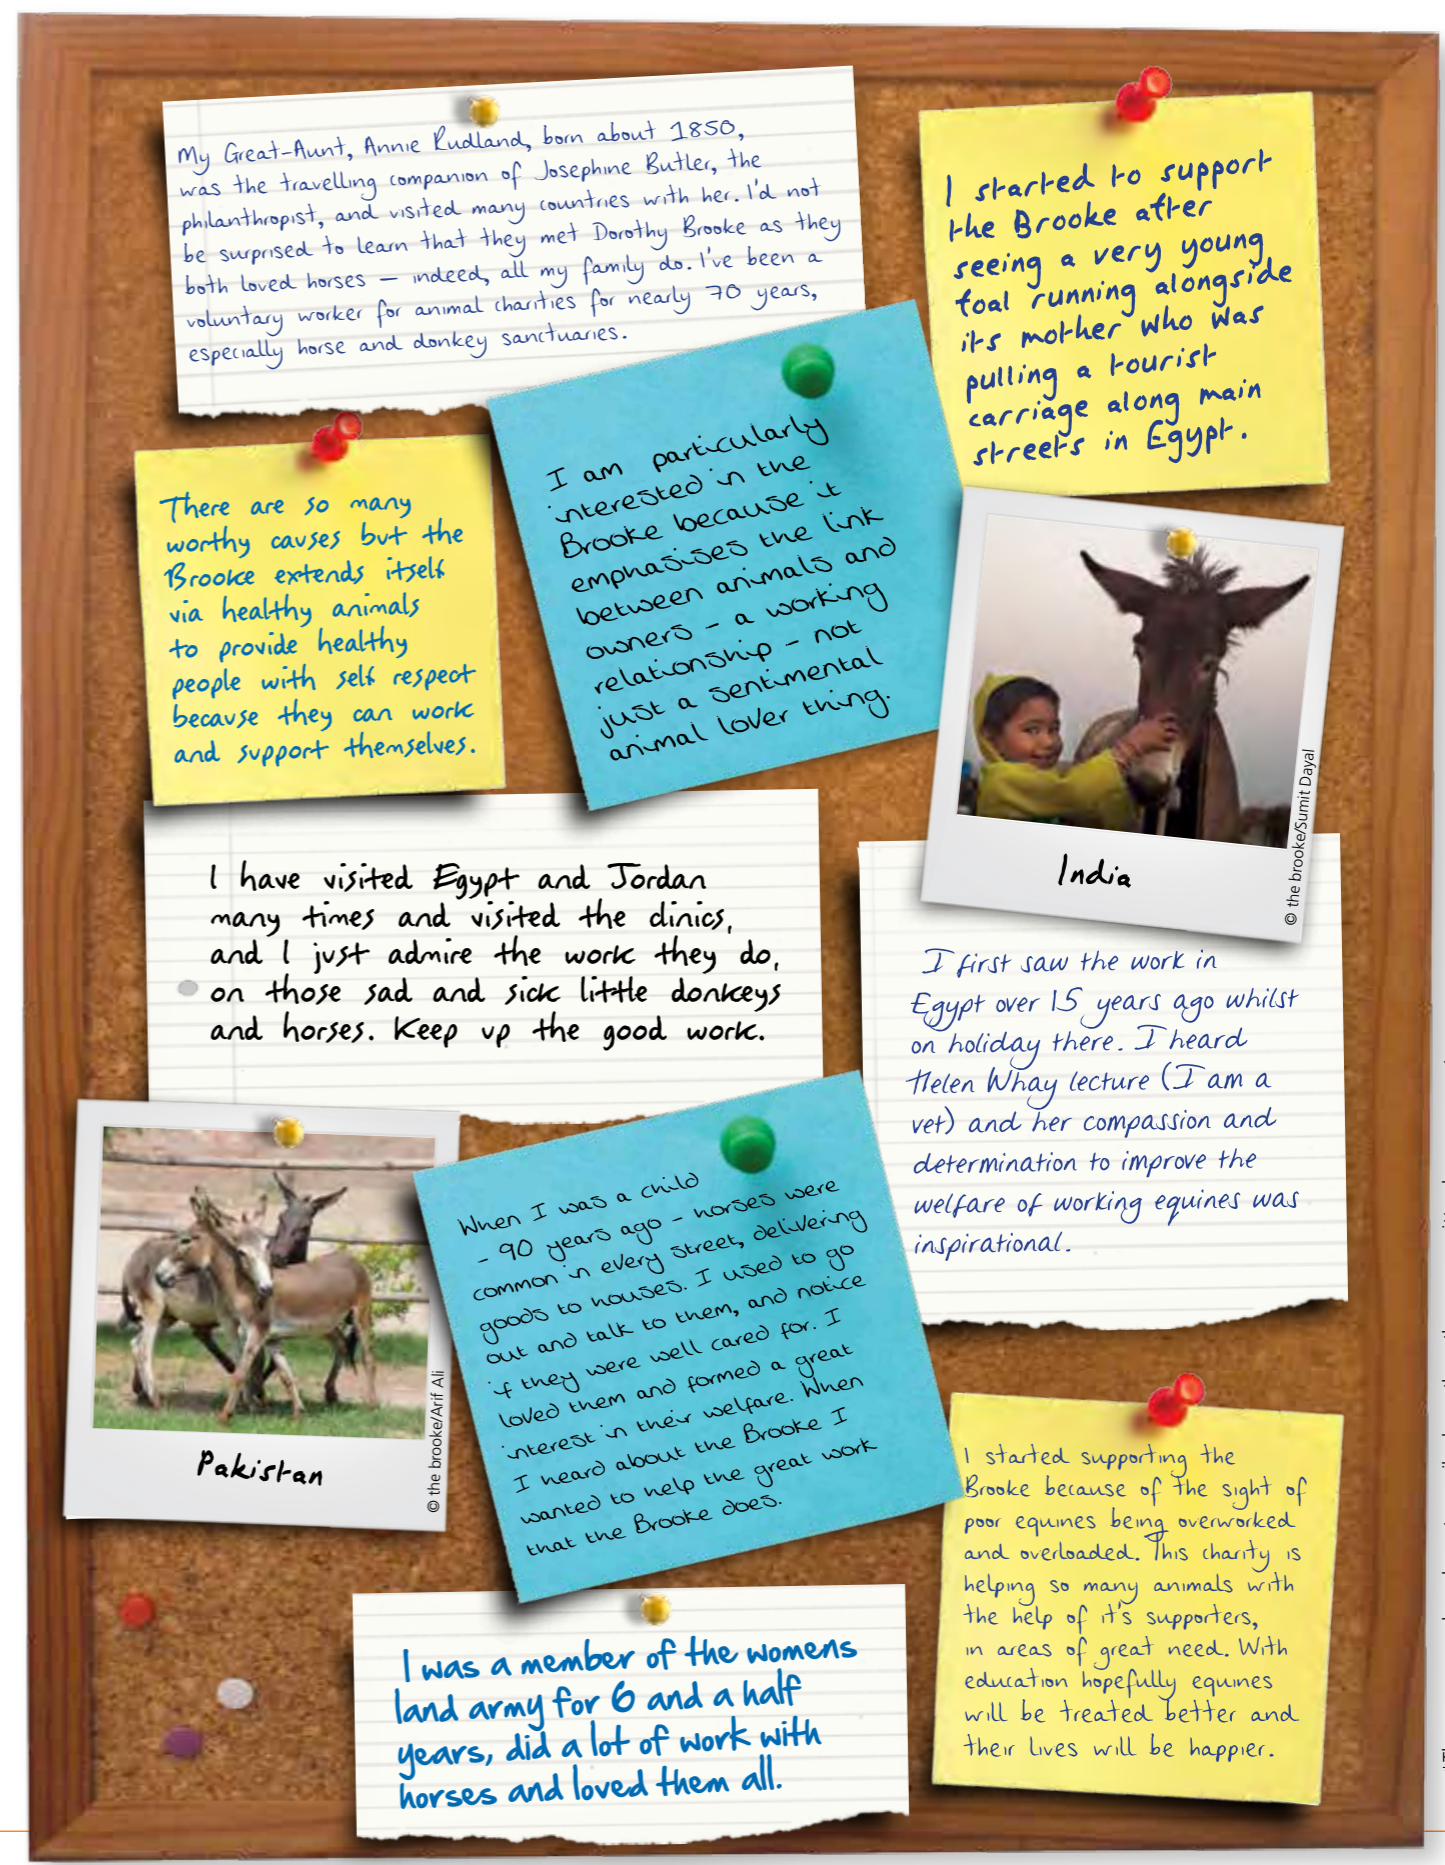 My Great-Aunt, Annie Rudland, born about 1850,
was the travelling companion of Josephine Butler, the
philanthropist, and visited many countries with her. I'd not
be surprised to learn that they met Dorothy Brooke as they
both loved horses – indeed, all my family do. I've been a
voluntary worker for animal charities for nearly 70 years,
especially horse and donkey sanctuaries.
I started to support
the Brooke after
seeing a very young
foal running alongside
its mother who was
pulling a tourist
carriage along main
streets in Egypt.
There are so many
worthy causes but the
Brooke extends itself
via healthy animals
to provide healthy
people with self respect
because they can work
and support themselves.
I am particularly
interested in the
Brooke because it
emphasises the link
between animals and
owners – a working
relationship – not
just a sentimental
animal lover thing.
India
© the brooke/Sumit Dayal
I have visited Egypt and Jordan
many times and visited the clinics,
and I just admire the work they do,
on those sad and sick little donkeys
and horses. Keep up the good work.
I first saw the work in
Egypt over 15 years ago whilst
on holiday there. I heard
Helen Whay lecture (I am a
vet) and her compassion and
determination to improve the
welfare of working equines was
inspirational.
Pakistan
© the brooke/Arif Ali
When I was a child
– 90 years ago – horses were
common in every street, delivering
goods to houses. I used to go
out and talk to them, and notice
if they were well cared for. I
loved them and formed a great
interest in their welfare. When
I heard about the Brooke I
wanted to help the great work
that the Brooke does.
I started supporting the
Brooke because of the sight of
poor equines being overworked
and overloaded. This charity is
helping so many animals with
the help of it's supporters,
in areas of great need. With
education hopefully equines
will be treated better and
their lives will be happier.
I was a member of the womens
land army for 6 and a half
years, did a lot of work with
horses and loved them all.